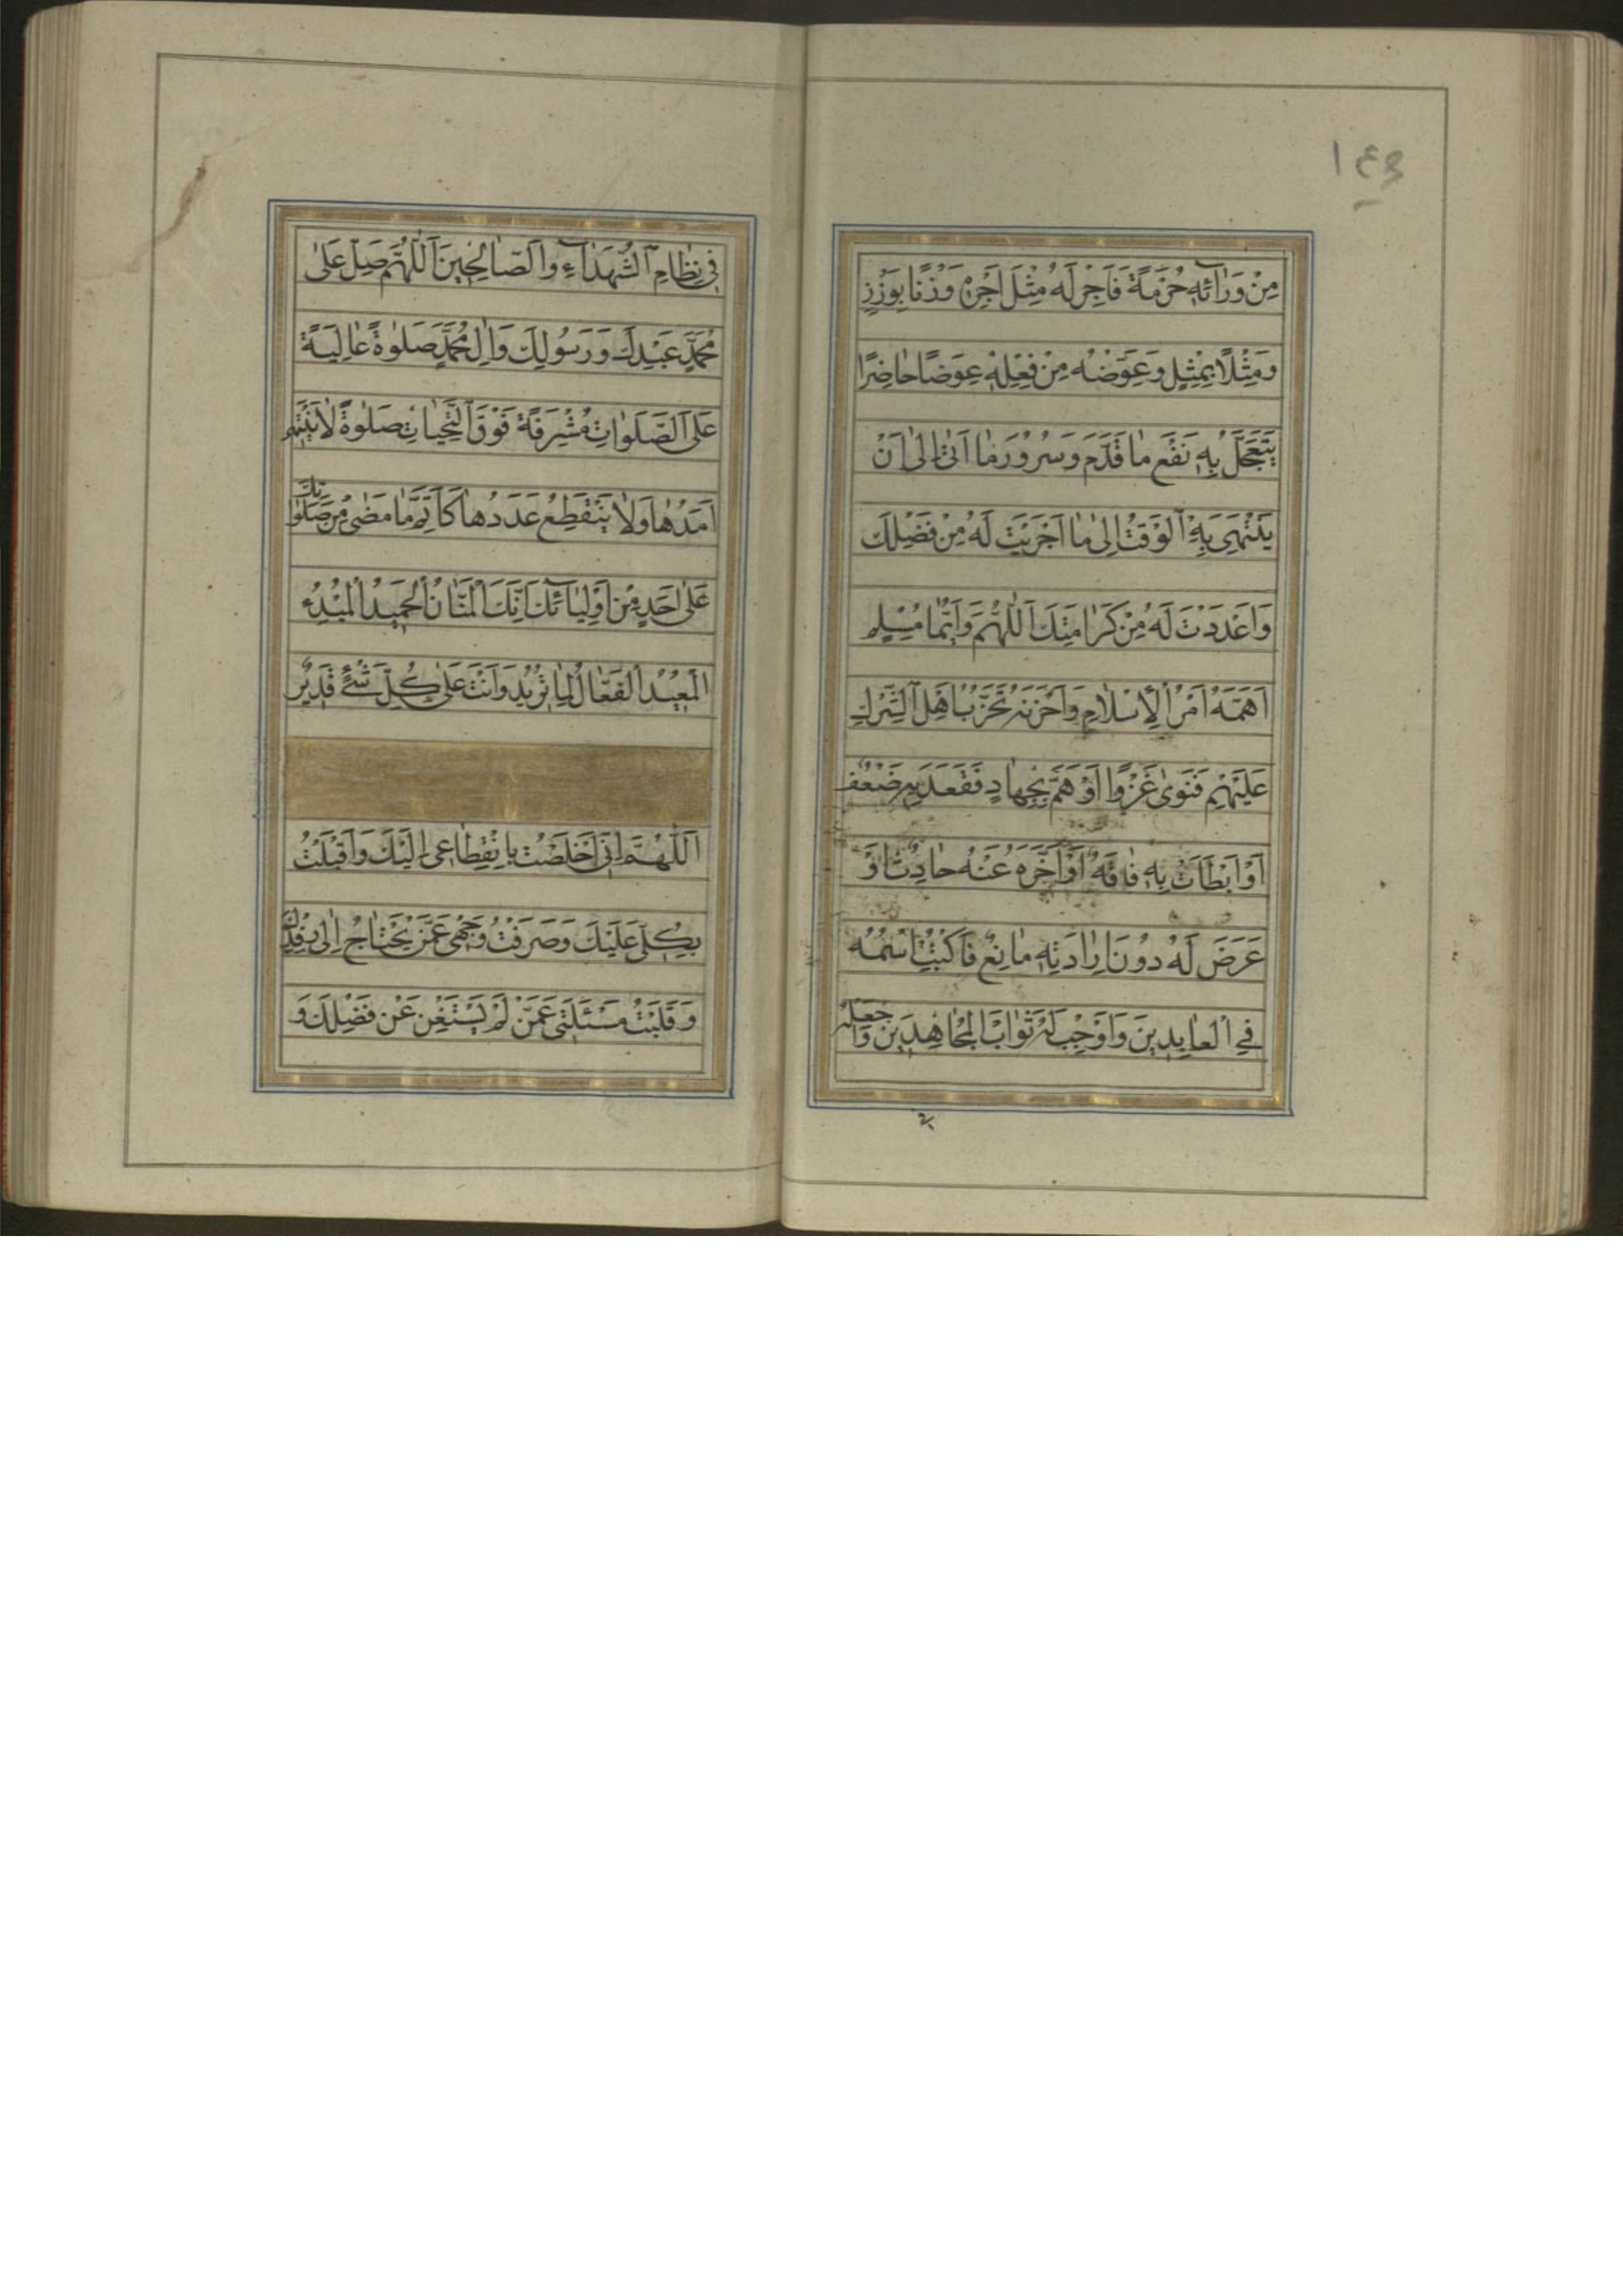 ١٤٣
مِنْ وَرٰائِهِ حُرْمَةً فَاَجِرْ لَهُ مِثْلَ اَجْرِهِ وَزْنًا بِوَزْنٍ
وَمِثْلًا بِمِثْلٍ وَعَوِّضْهُ مِنْ فِعْلِهِ عِوَضًا حٰاضِرًا
يَتَعَجَّلُ بِهِ نَفْعَ مٰا قَدَّمَ وَسُرُورَ مٰا اَتىٰ اِلىٰ اَنْ
يَنْتَهِىَ بِهِ اَلْوَقْتُ اِلىٰ مٰا اَجْرَيْتَ لَهُ مِنْ فَضْلِكَ
وَاَعْدَدْتَ لَهُ مِنْ كَرٰامَتِكَ اَللّٰهُمَّ وَاَيُّمٰا مُسْلِمٍ
اَهَمَّهُ اَمْرُ اَلْاِسْلٰامِ وَاَحْزَنَهُ تَحَزُّبُ اَهْلِ اَلشِّرْكِ
عَلَيْهِمْ فَنَوىٰ غَزْوًا اَوْ هَمَّ بِجِهٰادٍ فَقَعَدَ بِهِ ضَعْفٌ
اَوْ اَبْطَاَتْ بِهِ فٰاقَةٌ اَوْ اَخَّرَهُ عَنْهُ حٰادِثٌ اَوْ
عَرَضَ لَهُ دُونَ اِرٰادَتِهِ مٰانِعٌ فَاكْتُبْ اسْمَهُ
فِي اَلْعٰابِدِينَ وَاَوْجِبْ لَهُ ثَوٰابَ اَلْمُجٰاهِدِينَ وَاجْعَلْهُ
فِى نِظٰامِ اَلشُّهَدٰآءِ وَاَلصّٰالِحِينَ اَللّٰهُمَّ صَلِّ عَلىٰ
مُحَمَّدٍ عَبْدِكَ وَرَسُولِكَ وَاٰلِ مُحَمَّدٍ صَلوٰةً عٰالِيَةً
عَلَى اَلصَّلَوٰاتِ مُشْرِفَةً فَوْقَ اَلتَّحِيّٰاتِ صَلوٰةً لٰا يَنْتَهِى
اَمَدُهٰا وَلٰا يَنْقَطِعُ عَدَدُهٰا كَاَتَمِّ مٰا مَضىٰ مِنْ صَلَوٰاتِكَ
عَلىٰ اَحَدٍ مِنْ اَوْلِيٰآئِكَ اِنَّكَ اَلْمَنّٰانُ اَلْحَمِيدُ اَلْمُبْدِئُ
اَلْمُعِيدُ اَلْفَعّٰالُ لِمٰا تُرِيدُ وَاَنْتَ عَلىٰ كُلِّ شَىْءٍ قَدِيرٌ
اَللّٰهُمَّ اِنِّى اَخْلَصْتُ بِانْقِطٰاعِى اِلَيْكَ وَاَقْبَلْتُ
بِكُلِّى عَلَيْكَ وَصَرَفْتُ وَجْهِى عَمَّنْ يَحْتٰاجُ اِلىٰ رِفْدِكَ
وَقَلَبْتُ مَسْئَلَتِى عَمَّنْ لَمْ يَسْتَغْنِ عَنْ فَضْلِكَ وَ